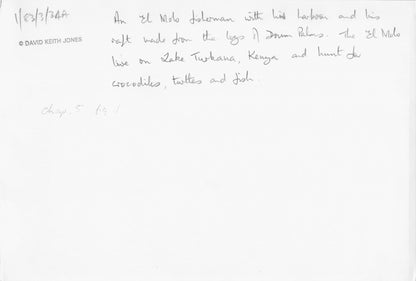 1/83/3/3AA
© DAVID KEITH JONES
An El Molo fisherman with his harpoon and his
raft made from the logs of Doum Palms. The El Molo
live on Lake Turkana, Kenya and hunt for
crocodiles, turtles and fish.
Chap. 5 fig 1